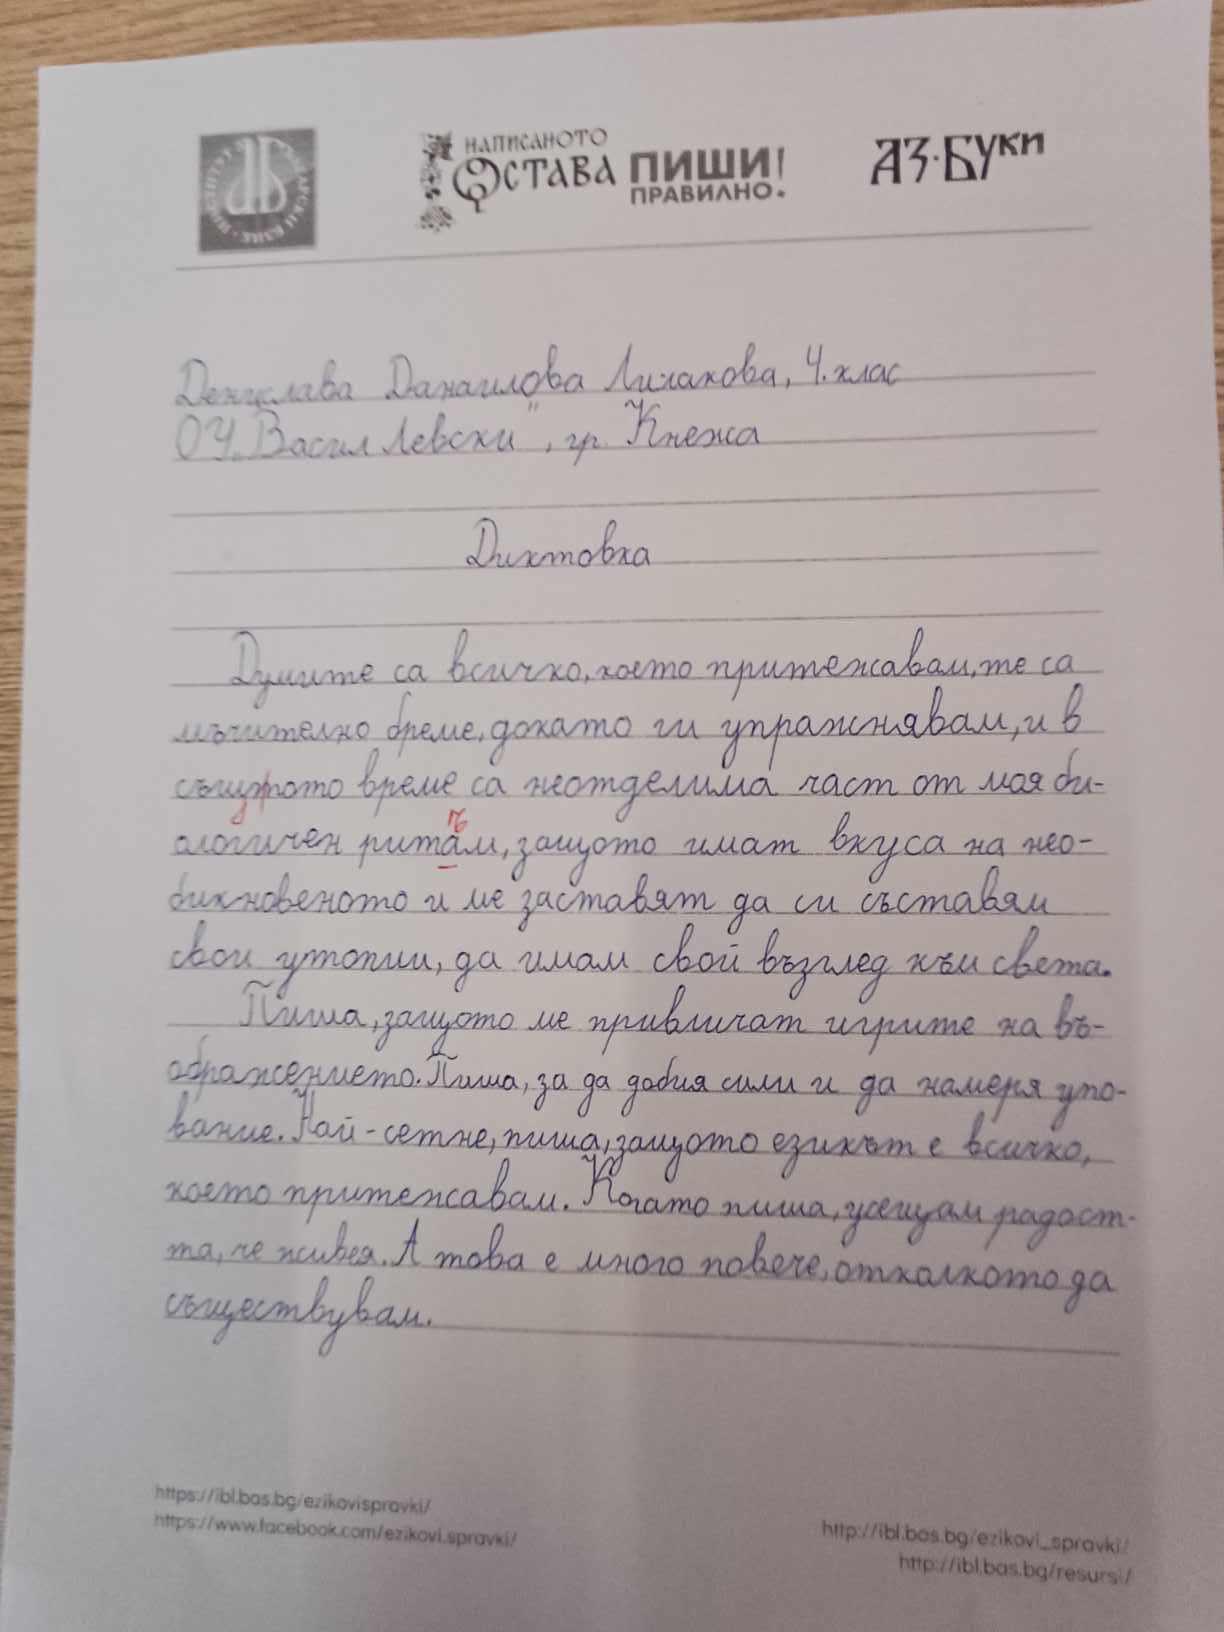 ИНСТИТУТ ЗА БЪЛГАРСКИ ЕЗИК
НАПИСАНОТО
ОСТАВА
ПИШИ!
ПРАВИЛНО.
АЗ·БУКИ
Денислава Данаилова Лилакова, 4. клас
ОУ „Васил Левски", гр. Кнежа
Диктовка
Думите са всичко, което притежавам, те са
мъчително бреме, докато ги упражнявам, и в
същото време са неотделима част от моя би-
ологичен ритам, защото имат вкуса на нео-
ъ
бикновеното и ме заставят да си съставям
свои утопии, да имам свой възглед към света.
Пиша, защото ме привличат игрите на въ-
ображението. Пиша, за да добия сили и да намеря упо-
вание. Най-сетне, пиша, защото езикът е всичко,
което притежавам. Когато пиша, усещам радост-
та, че живея. А това е много повече, отколкото да
съществувам.
https://ibl.bas.bg/ezikovispravki/
https://www.facebook.com/ezikovi.spravki/
http://ibl.bas.bg/ezikovi_spravki/
http://ibl.bas.bg/resursi/